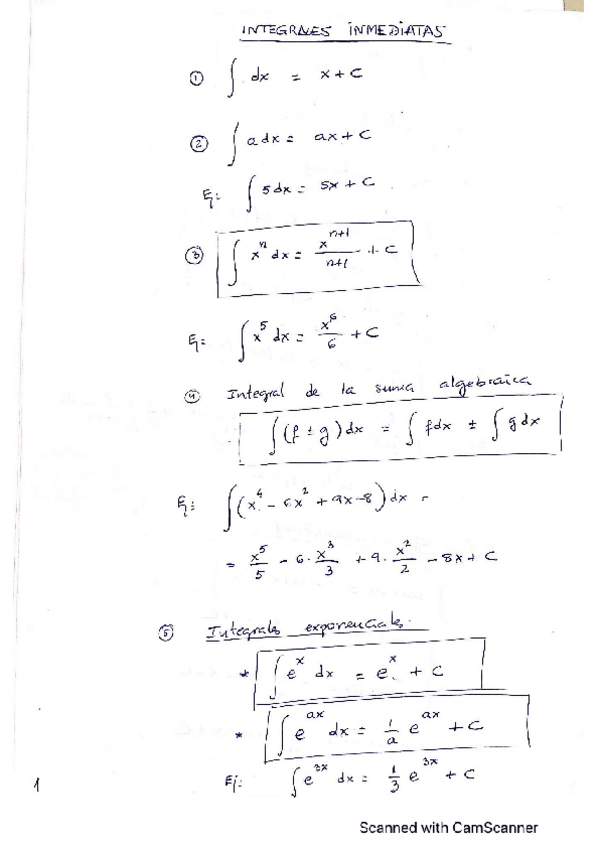 INTEGRALES INMEDIATAS
① ∫ dx = x + C
② ∫ a dx = ax + C
Ej: ∫ 5 dx = 5x + C
③ ∫ xⁿ dx = xⁿ⁺¹/n+1 + C
Ej: ∫ x⁵ dx = x⁶/6 + C
④ Integral de la suma algebraica
∫ (f ± g) dx = ∫ f dx ± ∫ g dx
Ej: ∫ (x⁴ - 6x² + 9x - 8) dx =
= x⁵/5 - 6 · x³/3 + 9 · x²/2 - 8x + C
⑤ Integrales exponenciales.
* ∫ eˣ dx = eˣ + C
* ∫ eᵃˣ dx = 1/a eᵃˣ + C
Ej: ∫ e³ˣ dx = 1/3 e³ˣ + C
1
Scanned with CamScanner